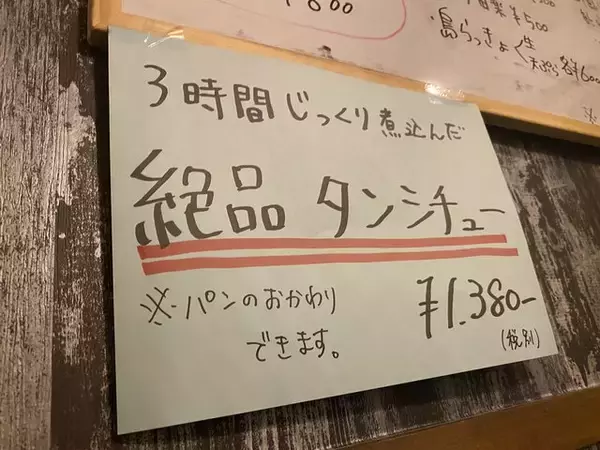 800
¥500
・島らっきょ 生 天ぷら 各¥600
3時間じっくり煮込んだ
絶品 タンシチュー
※パンのおかわり
できます。
¥1.380-
(税別)